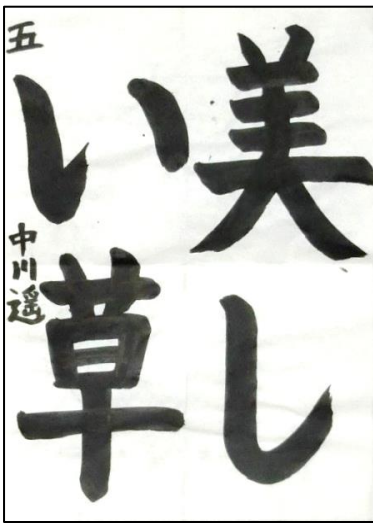 美し
い草
五 中川遥